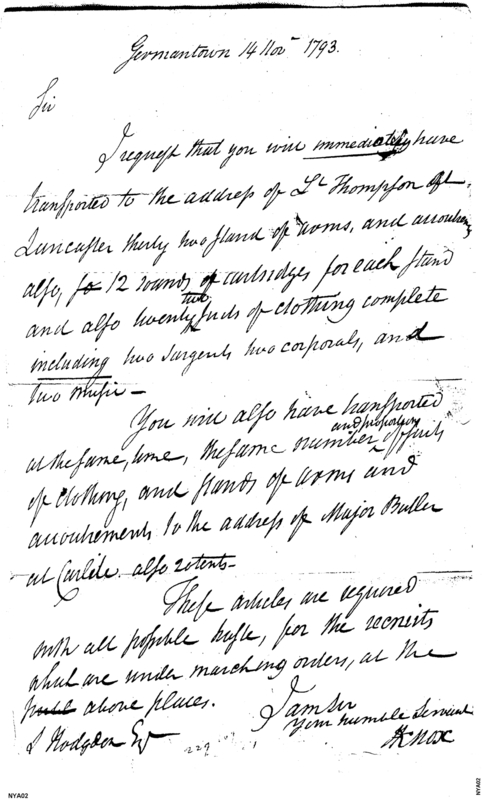 Germantown 14 Novr 1793.
Sir
I request that you will immediately have
transported to the address of Lt Thompson at
Lancaster thirty two stand of arms, and accoutremts
also, 12 rounds of cartridges for each stand
and also twenty two suits of clothing complete
including two sargents two corporals, and
two music —
You will also have transported
at the same time, the same number and proportion of suits
of clothing, and stands of arms and
accoutrements to the address of Major Butler
at Carlile. also 20 tents —
These articles are required
with all possible haste, for the recruits
which are under marching orders, at the
above places.
I am Sir
Your humble Servant
HKnox
S Hodgdon Esqr
229
NYA02
NYA02